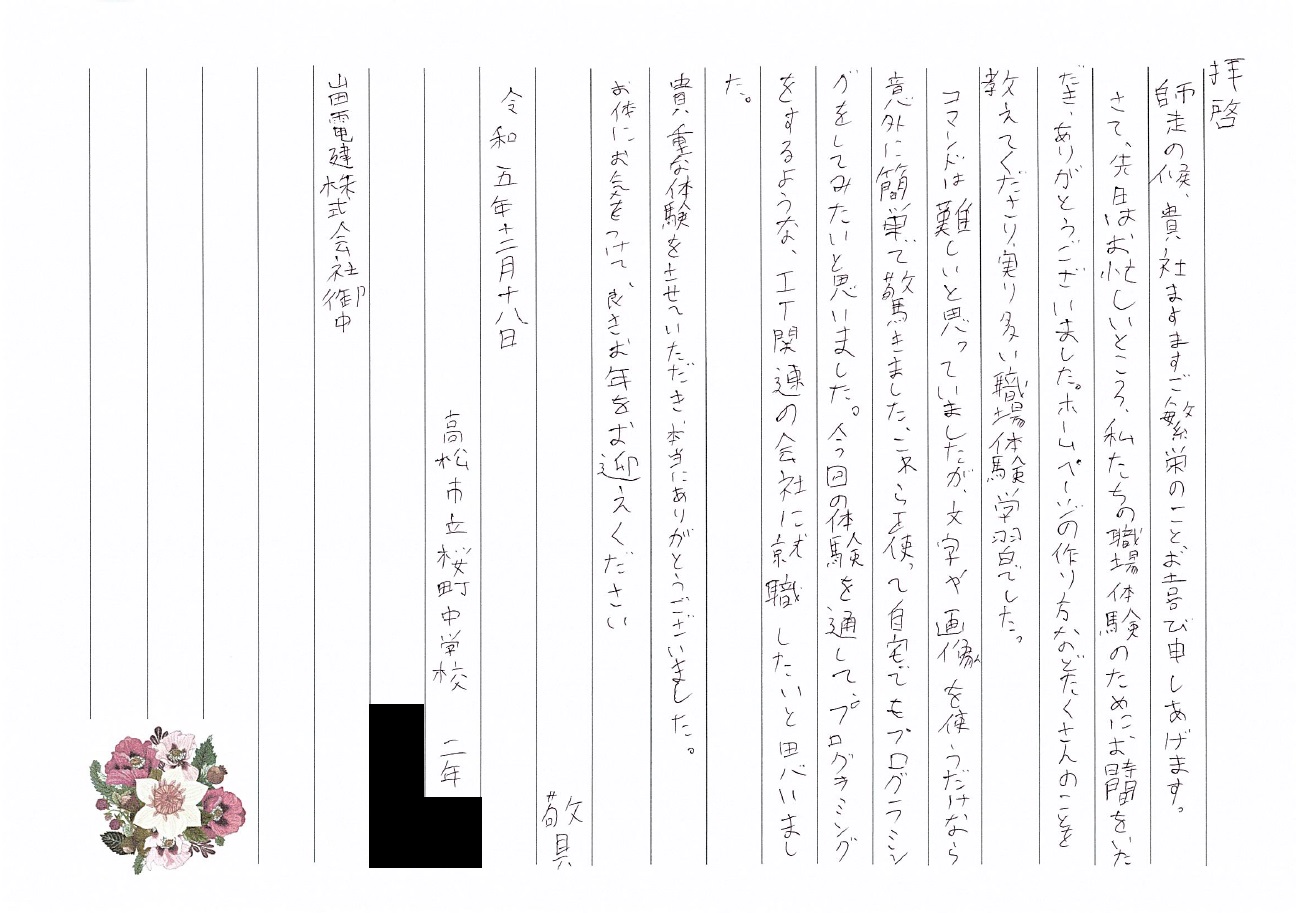 拝啓
師走の候、貴社ますますご繁栄のことお喜び申しあげます。
さて、先日はお忙しいところ、私たちの職場体験のためにお時間をいた
だき、ありがとうございました。ホームページの作り方などたくさんのことを
教えてくださり、実り多い職場体験学習でした。
コマンドは難しいと思っていましたが、文字や画像を使うだけなら
意外に簡単で驚きました。これらを使って自宅でもプログラミン
グをしてみたいと思いました。今回の体験を通して、プログラミング
をするような、IT関連の会社に就職したいと思いまし
た。
貴重な体験をさせていただき、本当にありがとうございました。
お体にお気をつけて、良きお年をお迎えください
敬具
令和五年十二月十八日
高松市立桜町中学校 二年
山田電建株式会社御中